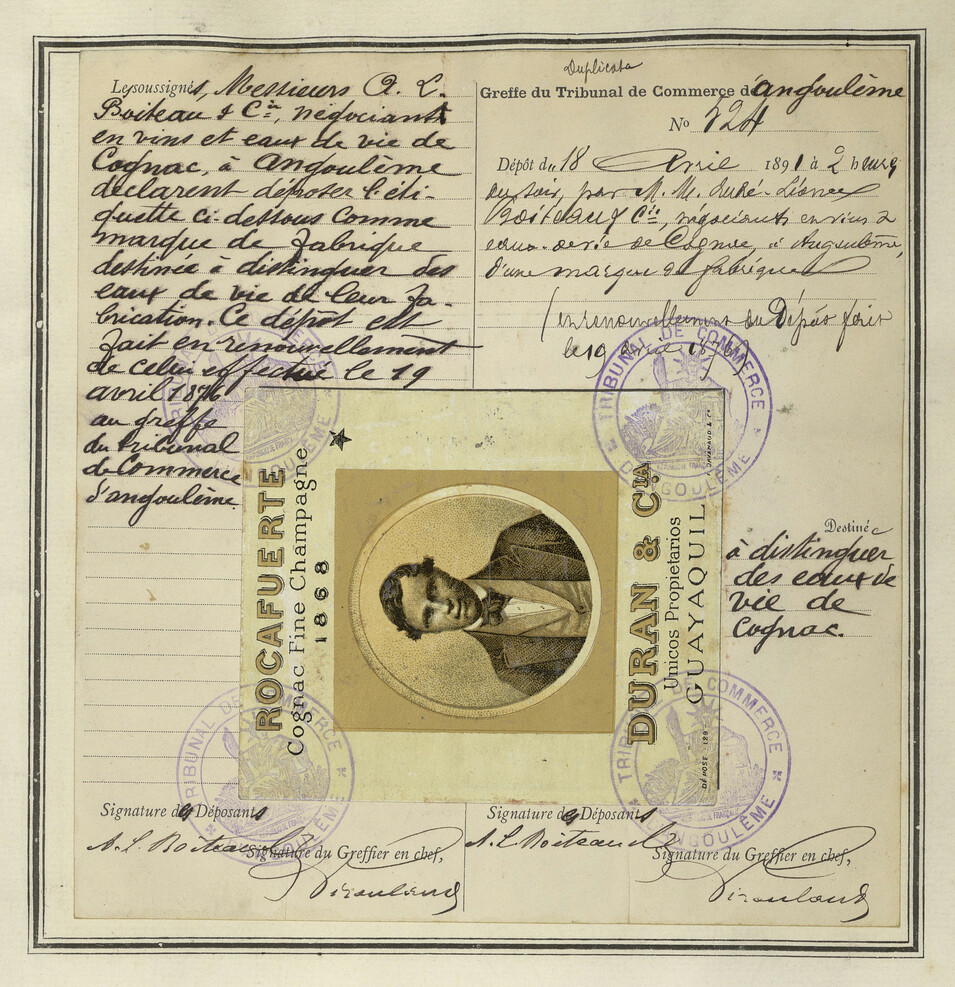 Les soussignés, Messieurs A. L.
Boiteau & Cie, négociants
en vins et eaux de vie de
Cognac, à Angoulême
déclarent déposer l'éti-
quette ci-dessous comme
marque de fabrique
destinée à distinguer des
eaux de vie de leur fa-
brication. Ce dépôt est
fait en renouvellement
de celui effectué le 19
avril 1876
au greffe
du tribunal
de Commerce
d'angoulême.
Duplicata
Greffe du Tribunal de Commerce d'angoulême
No 724
Dépôt du 18 Avril 1891 à 2 heures
du soir, par M. M. André-Léonce
Boiteau & Cie, négociants en vins &
eaux-de-vie de Cognac, à Angoulême,
d'une marque de fabrique
(en renouvellement du Dépôt fait
le 19 avril 1876)
ROCAFUERTE
Cognac Fine Champagne
1868
DURAN & CIA
Unicos Propietarios
GUAYAQUIL
DÉPOSÉ
Destiné
à distinguer
des eaux de
vie de
Cognac.
TRIBUNAL DE COMMERCE
D'ANGOULÊME
TRIBUNAL DE COMMERCE
D'ANGOULÊME
TRIBUNAL DE COMMERCE
D'ANGOULÊME
TRIBUNAL DE COMMERCE
D'ANGOULÊME
Signature des Déposants
A. L. Boiteau & Cie
Signature du Greffier en chef,
Signature des Déposants
A. L. Boiteau & Cie
Signature du Greffier en chef,